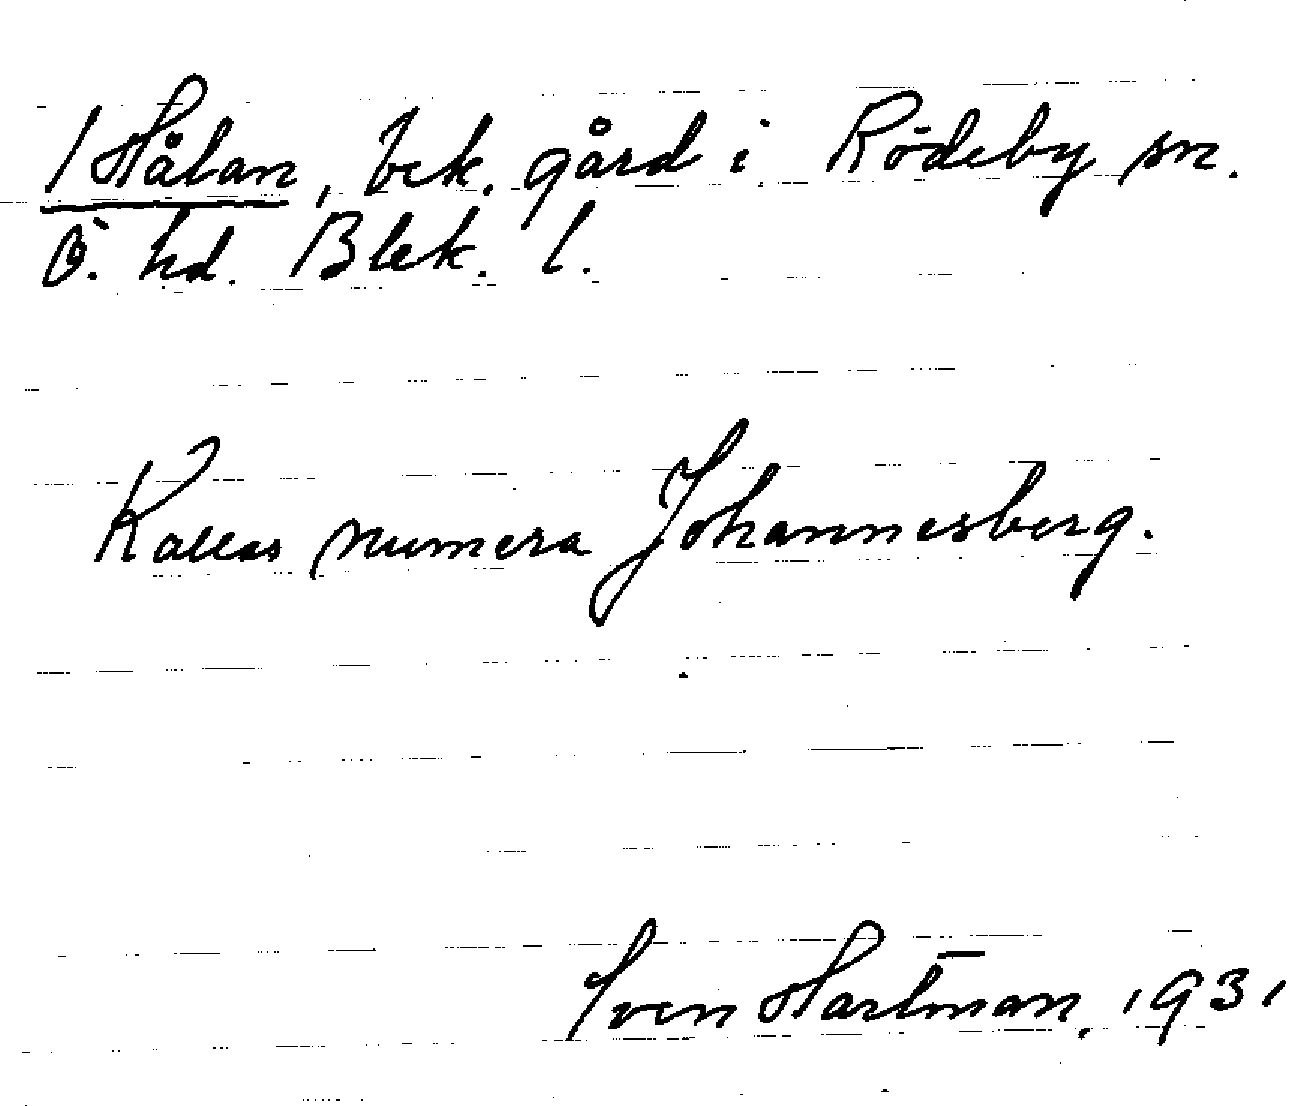 / Hålan, bek. gård i Rödeby sn.
Ö. hd. Blek. l.
Kallas numera Johannesberg.
Sven Hartman, 1931